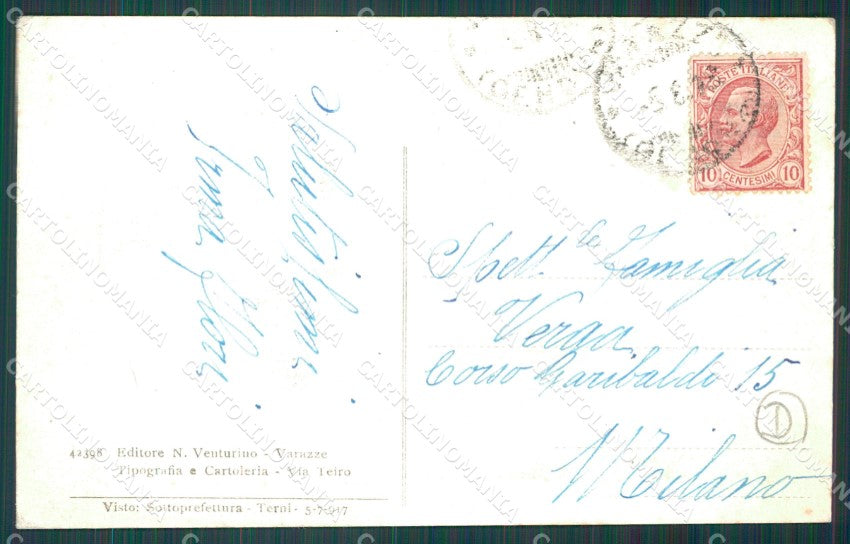 Salutissimi
Irma
POSTE ITALIANE
10 CENTESIMI 10
Spett. le Famiglia
Verga
Corso Garibaldi 15
Milano
1
42398 Editore N. Venturino - Varazze
Tipografia e Cartoleria - Via Teiro
Visto: Sottoprefettura - Terni - 5-7-917
CARTOLINOMANIA